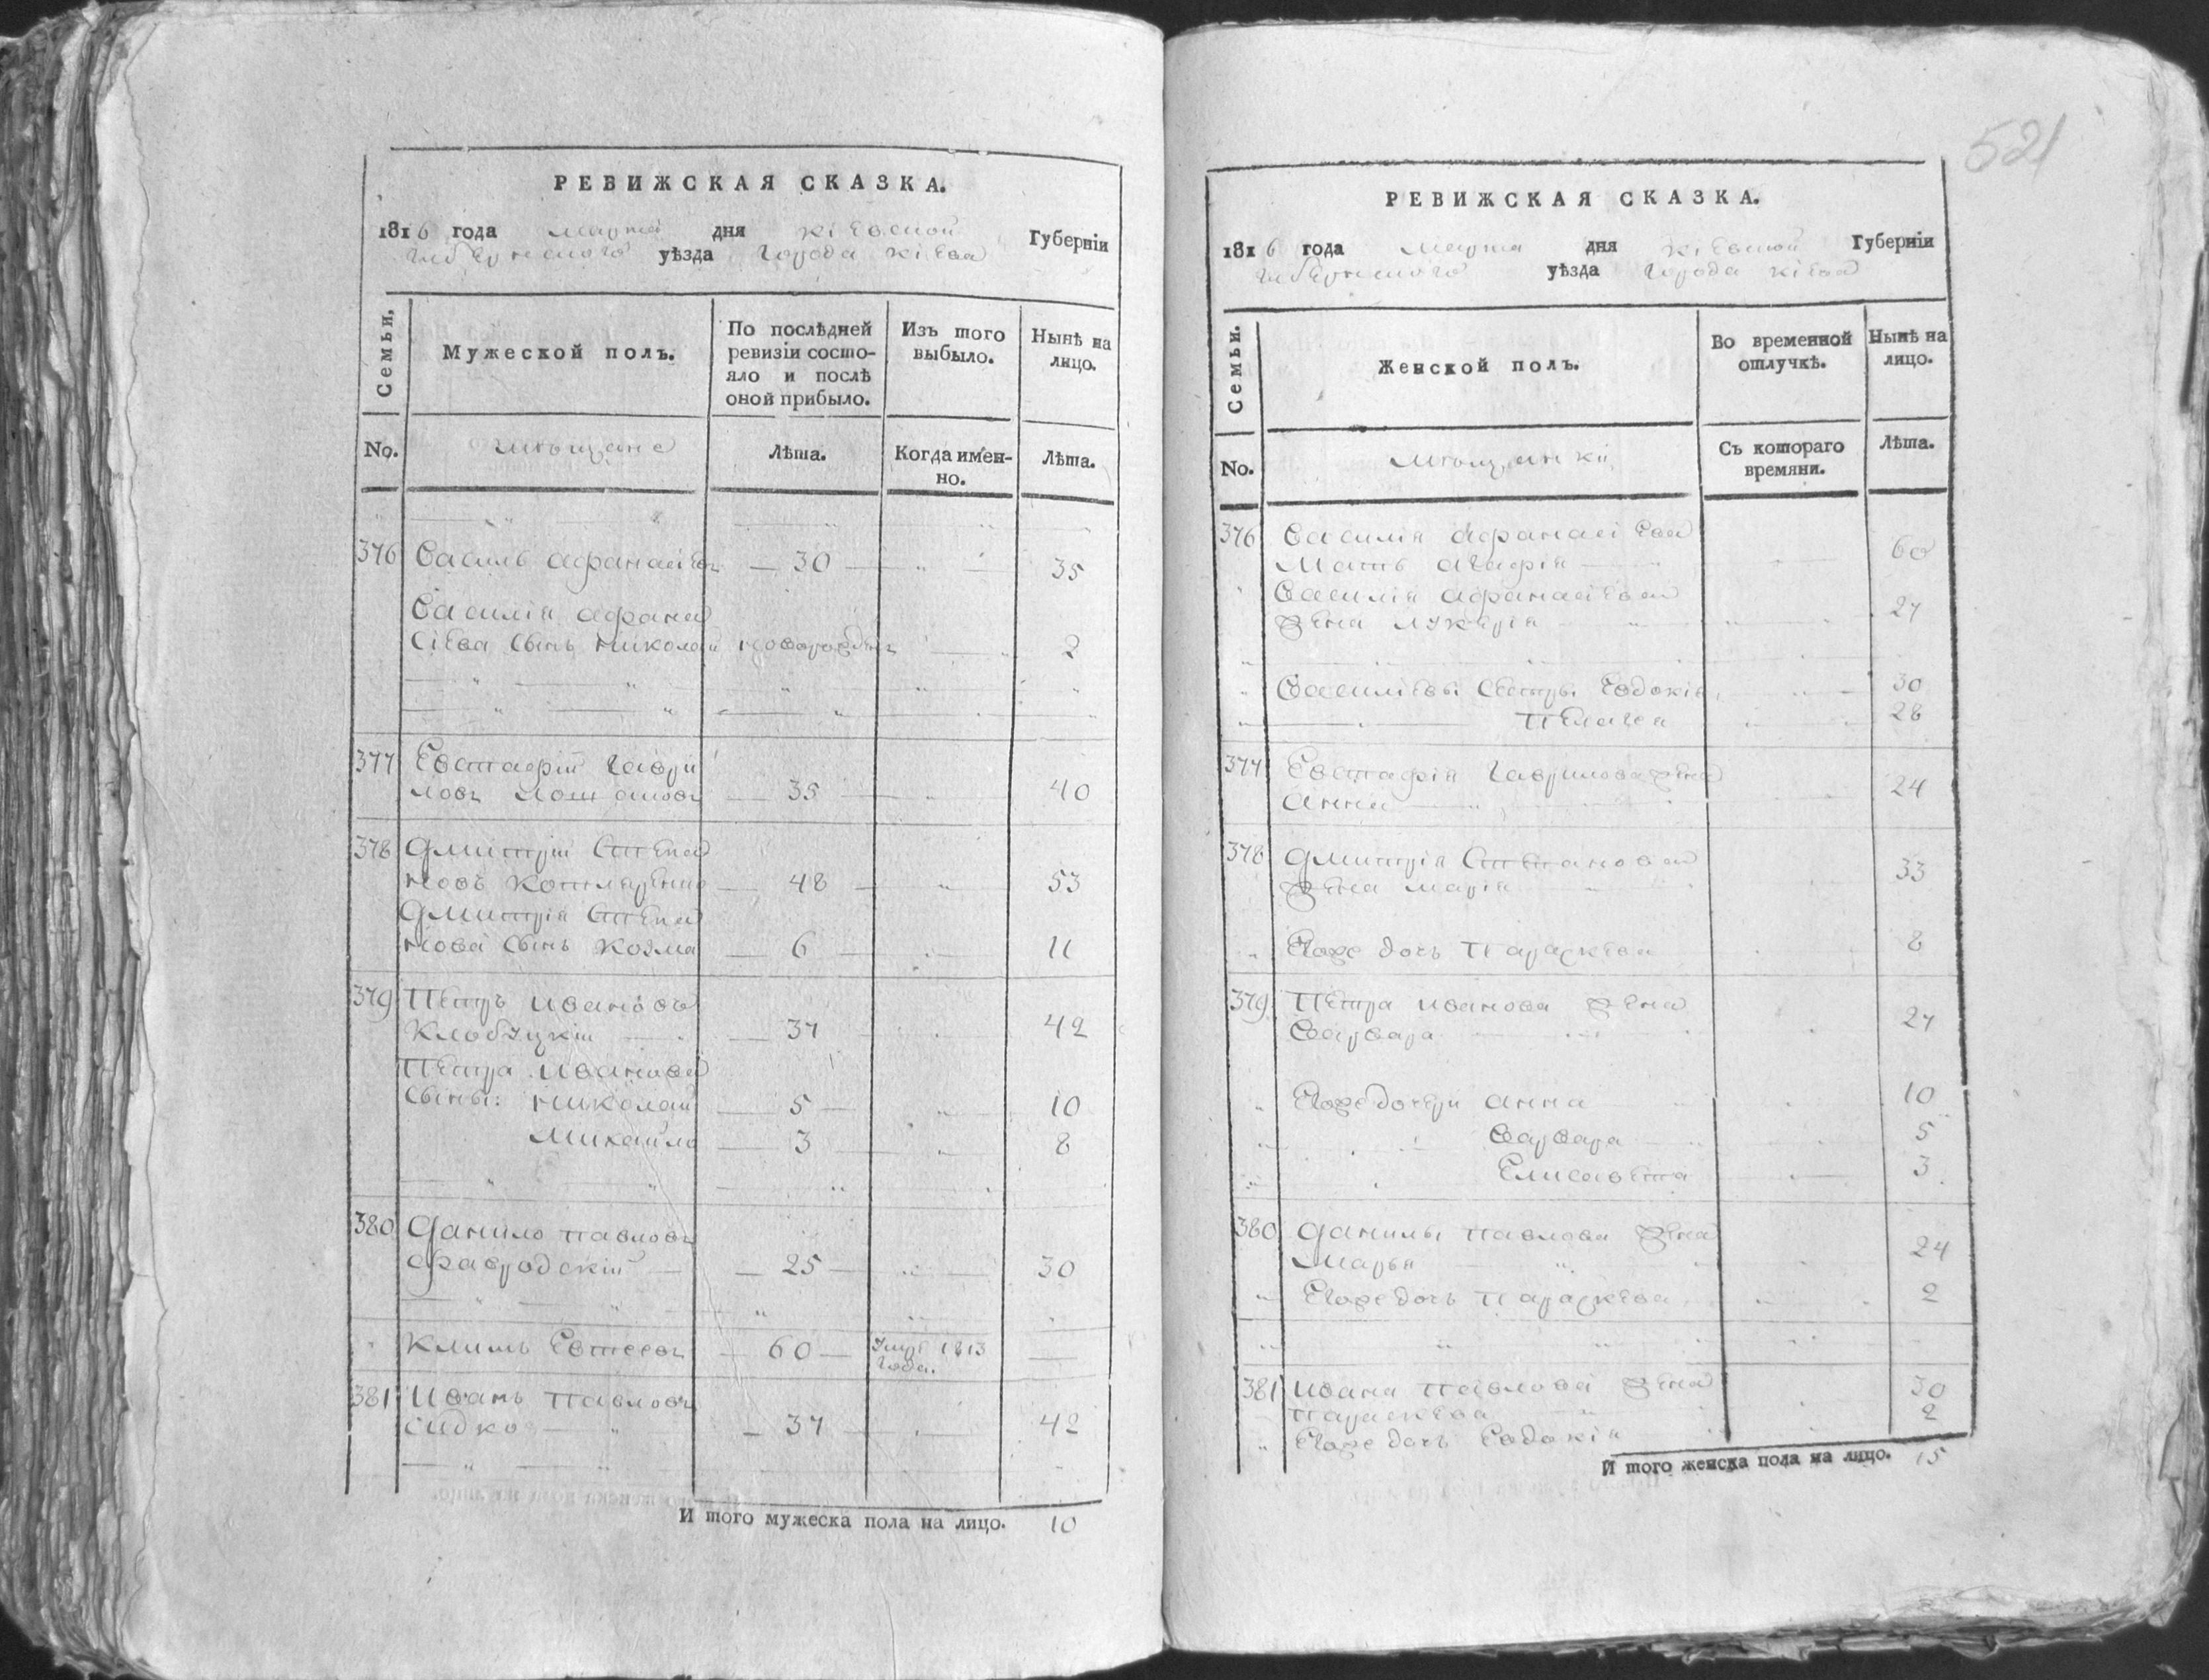 РЕВИЖСКАЯ СКАЗКА.
1816 года марта дня Кіевской Губерніи
Губернского уѣзда Города Кіева
Семьи.
Мужеской полъ.
По послѣдней ревизіи состо-
яло и послѣ
оной прибыло.
Изъ того
выбыло.
Нынѣ на
лицо.
No. мѣщане Лѣта. Когда имен-
но. Лѣта.
376 Василь Афанасіевъ — 30 — 35
Василія Афана
сіева сынъ Николай новорожденъ 2
377 Евстафій Гаври
ловъ — 35 40
378 Дмитрій Степа
новъ Котляренко — 48 — 53
Дмитрія Степа
нова сынъ Козма — 6 11
379 Петръ Ивановъ
Клобуцкій — 37 42
Петра Иванова
сыны: Николай — 5 — 10
Михайло — 3 8
380 Данило Павловъ
— 25 — 30
Климъ Евтеевъ — 60 — Умре 1813
года. —
381 Иванъ Павловъ
Сидко — 37 42
И того мужеска пола на лицо. 10
521
РЕВИЖСКАЯ СКАЗКА.
1816 года марта дня Кіевской Губерніи
Губернского уѣзда Города Кіева
Семьи.
Женской полъ.
Во временной
отлучкѣ.
Нынѣ на
лицо.
No. мѣщанки Съ котораго
времяни. Лѣта.
376 Василія Афанасіева
мать Агафія 60
Василія Афанасіева
жена Лукерія 27
Василіевы сестры Евдокія 30
Пелагея 28
377 Евстафія Гаврилова жена
Анна 24
378 Дмитрія Степанова
жена Марія 33
Егоже дочь Параскева 8
379 Петра Иванова жена
Варвара 27
Егоже дочери Анна 10
Варвара 5
Елисавета 3
380 Данилы Павлова жена
Марья 24
Егоже дочь Параскева 2
381 Ивана Павлова жена 30
Параскева 2
Егоже дочь Евдокія
И того женска пола на лицо. 15